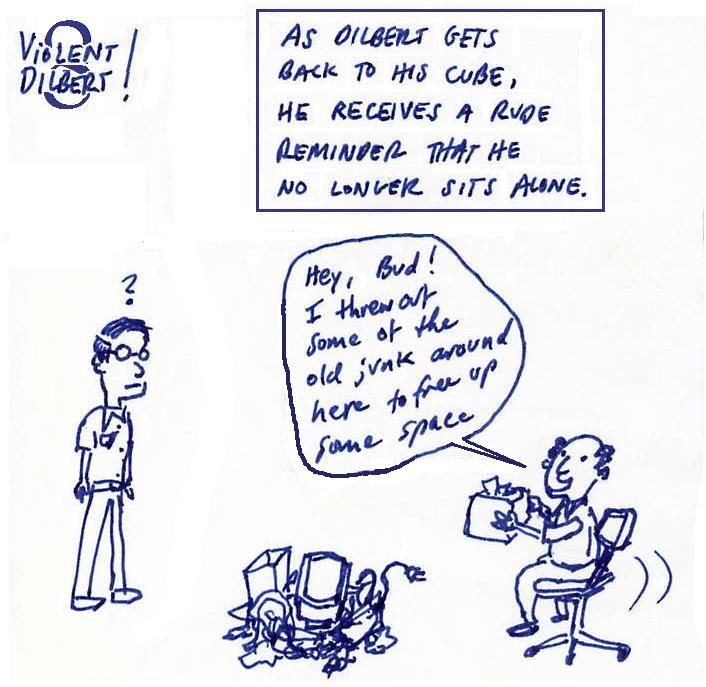 8
VIOLENT
DILBERT!
AS DILBERT GETS
BACK TO HIS CUBE,
HE RECEIVES A RUDE
REMINDER THAT HE
NO LONGER SITS ALONE.
?
Hey, Bud!
I threw out
some of the
old junk around
here to free up
some space